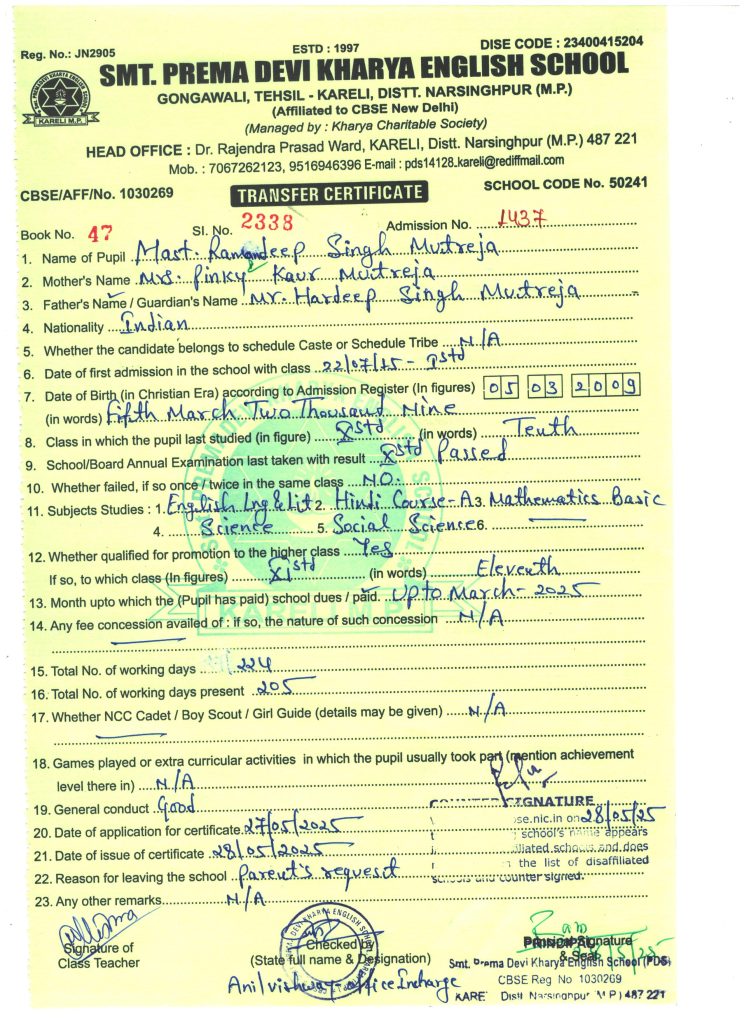 Reg. No.: JN2905
ESTD : 1997
DISE CODE : 23400415204
SMT. PREMA DEVI KHARYA ENGLISH SCHOOL
GONGAWALI, TEHSIL - KARELI, DISTT. NARSINGHPUR (M.P.)
(Affiliated to CBSE New Delhi)
(Managed by : Kharya Charitable Society)
KARELI M.P.
HEAD OFFICE : Dr. Rajendra Prasad Ward, KARELI, Distt. Narsinghpur (M.P.) 487 221
Mob. : 7067262123, 9516946396 E-mail : pds14128.kareli@rediffmail.com
CBSE/AFF/No. 1030269 TRANSFER CERTIFICATE SCHOOL CODE No. 50241
Book No. 47 Sl. No. 2338 Admission No. 1437
1. Name of Pupil Mast. Ramandeep Singh Mutreja
2. Mother's Name Mrs. Pinky Kaur Mutreja
3. Father's Name / Guardian's Name Mr. Hardeep Singh Mutreja
4. Nationality Indian
5. Whether the candidate belongs to schedule Caste or Schedule Tribe N/A
6. Date of first admission in the school with class 22/07/15 - Istd
7. Date of Birth (in Christian Era) according to Admission Register (In figures) 05 03 2009
(in words) Fifth March Two Thousand Nine
8. Class in which the pupil last studied (in figure) Xstd (in words) Tenth
9. School/Board Annual Examination last taken with result Xstd Passed
10. Whether failed, if so once / twice in the same class NO.
11. Subjects Studies : 1. English Lng & Lit 2. Hindi Course-A 3. Mathematics Basic
4. Science 5. Social Science 6.
12. Whether qualified for promotion to the higher class Yes
If so, to which class (In figures) XIstd (in words) Eleventh
13. Month upto which the (Pupil has paid) school dues / paid. Upto March-2025
KARELI M.P.
14. Any fee concession availed of : if so, the nature of such concession N/A
15. Total No. of working days 224
16. Total No. of working days present 205
17. Whether NCC Cadet / Boy Scout / Girl Guide (details may be given) N/A
18. Games played or extra curricular activities in which the pupil usually took part (mention achievement
level there in) N/A
19. General conduct Good
COUNTER SIGNATURE
20. Date of application for certificate 27/05/2025
se.nic.in on 28/05/25
school's name appears
21. Date of issue of certificate 28/05/2025
iliated schools and does
the list of disaffiliated
22. Reason for leaving the school Parent's request
schools and counter signed.
23. Any other remarks N/A
Signature of
Class Teacher
Checked by
(State full name & Designation)
Anil vishway - office Incharge
Principal Signature
& Seal
PRINCIPAL
Smt. Prema Devi Kharya English School (PDS)
CBSE Reg No 1030269
KARE Distt. Narsinghpur M P) 487 221